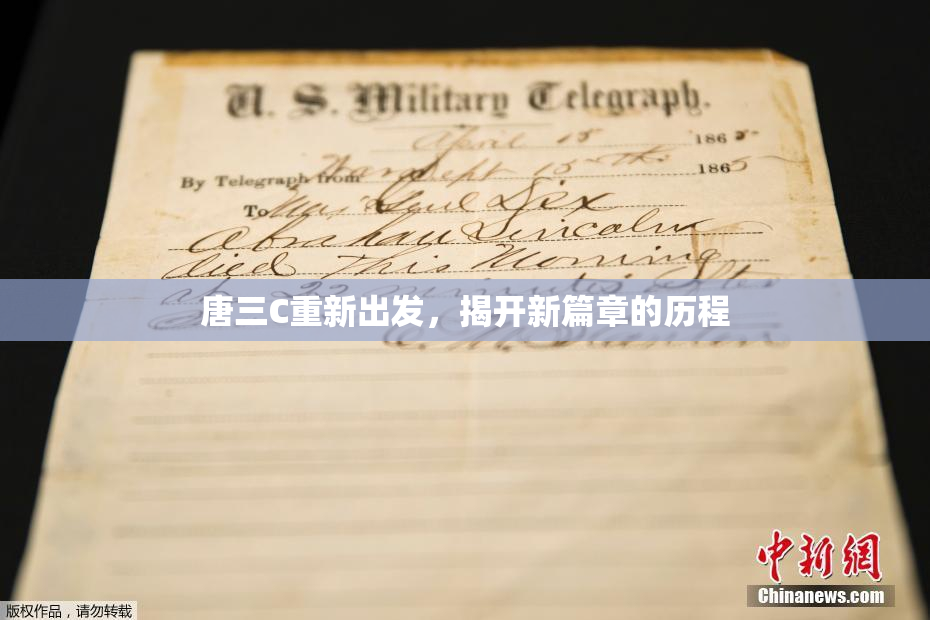 U. S. Military Telegraph.
April 15 1865
By Telegraph from War Dept 15th 1865
To Maj Genl Dix
Abraham Lincoln
died This Morning
at 22 minutes after
唐三C重新出发，揭开新篇章的历程
E. M. Stanton
中新网
Chinanews.com
版权作品，请勿转载